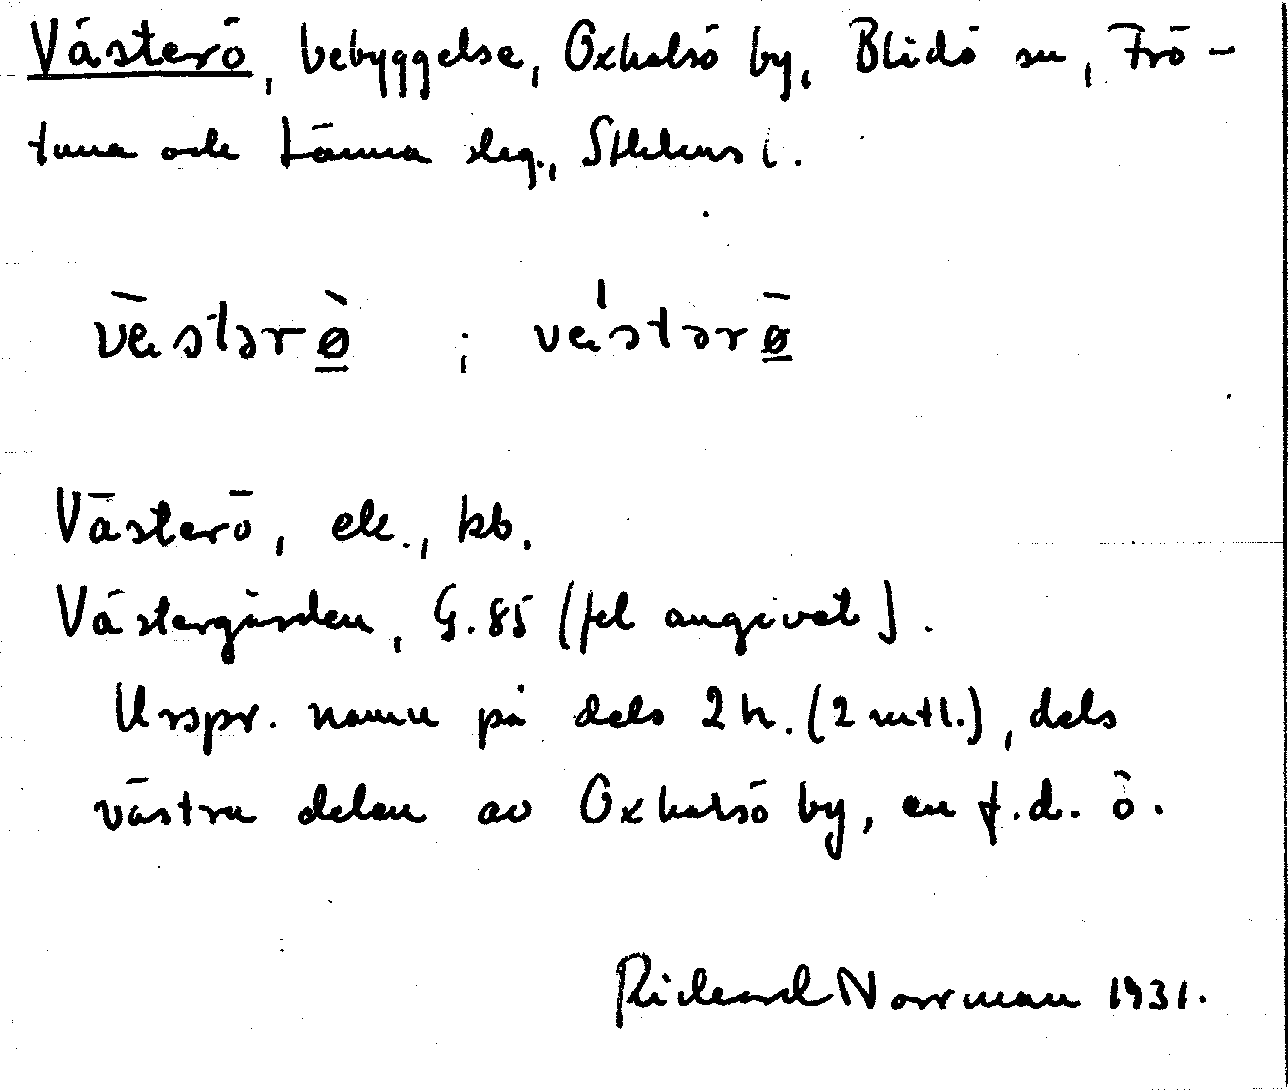 Västerö, bebyggelse, Oxhalsö by, Blidö sn, Frö-
tuna och Länna slg., Sthlms l.
västərø̱ ; västərø̱
Västerö, ek., kb.
Västergården, G. 85 (fel angivet).
Urspr. namn på dels 2 h. (2 mtl.), dels
västra delen av Oxhalsö by, en f.d. ö.
Rickard Norrman 1931.